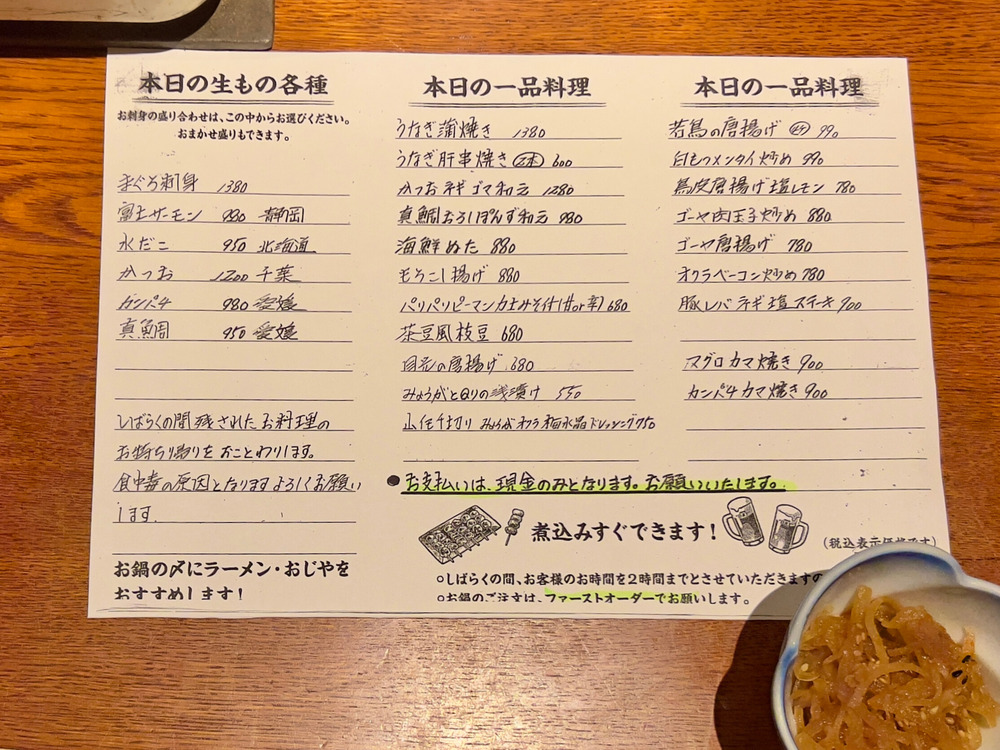 本日の生もの各種
お刺身の盛り合わせは、この中からお選びください。
おまかせ盛りもできます。
まぐろ刺身 1380
富士サーモン 980 静岡
水だこ 950 北海道
かつお 1200 千葉
カンパチ 980 愛媛
真鯛 950 愛媛
しばらくの間残されたお料理の
お持ち帰りをおことわりします。
食中毒の原因となりますよろしくお願い
します。
お鍋の〆にラーメン・おじやを
おすすめします!
本日の一品料理
うなぎ蒲焼き 1380
うなぎ肝串焼き 2本 600
かつおネギゴマ和え 1280
真鯛おろしぽんず和え 980
海鮮ぬた 880
もろこし揚げ 880
パリパリピーマン肉みそ付(甘or辛) 680
茶豆風枝豆 680
目光の唐揚げ 680
みょうがと瓜の浅漬け 550
ドレッシング 750
本日の一品料理
若鳥の唐揚げ 990
白もつメンタイ炒め 990
鳥皮唐揚げ塩レモン 780
ゴーヤ肉玉子炒め 880
ゴーヤ唐揚げ 780
オクラベーコン炒め 780
豚レバネギ塩ステーキ 900
マグロカマ焼き 900
カンパチカマ焼き 900
●お支払いは、現金のみとなります。お願いいたします。
煮込みすぐできます!
(税込表示価格です)
○しばらくの間、お客様のお時間を2時間までとさせていただきますの
○お鍋のご注文は、ファーストオーダーでお願いします。